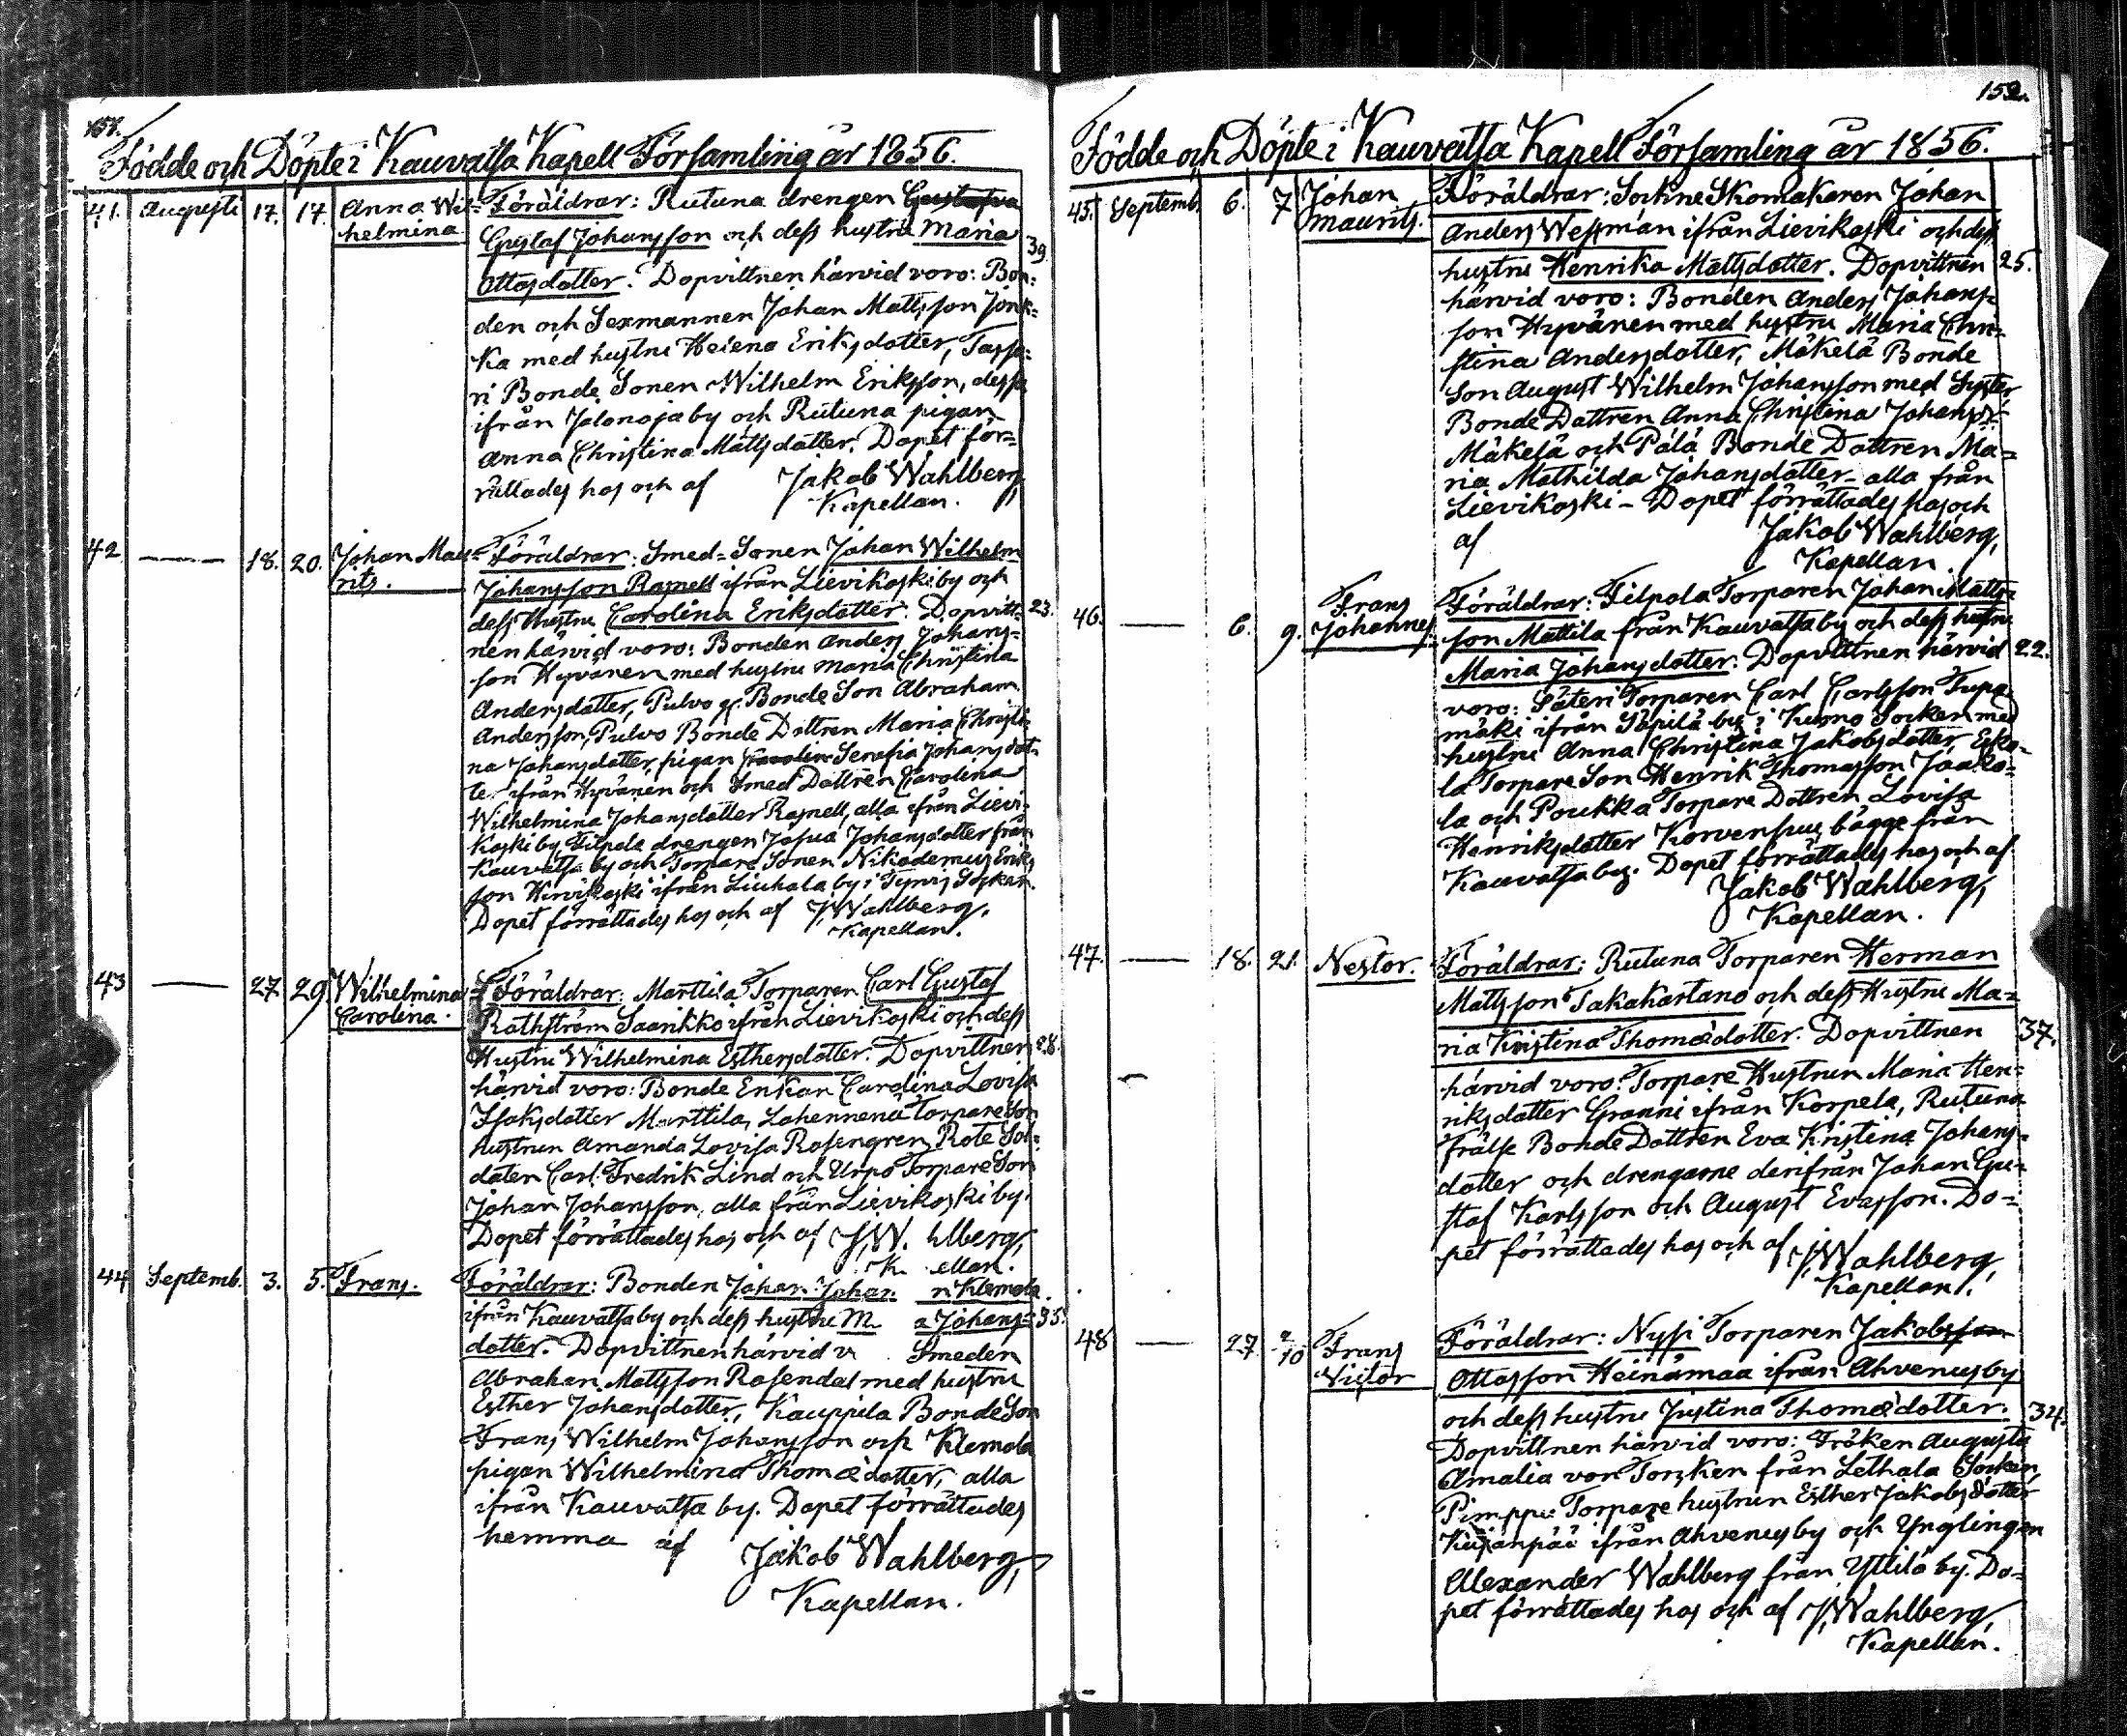 151.
Födde och Döpte i Kauvatsa Kapell Församling år 1856.
41. Augusti 17. 17. Anna Wil=
helmina
Föräldrar: Rutuna drengen Gustafva
Gustaf Johansson och dess hustru Maria
39
Ottasdotter. Dopvittnen härvid voro: Bon=
den och Sexmannen Johan Mattsson Jonk=
ka med hustru Helena Eriksdotter,
ri Bonde Sonen Wilhelm Eriksson, dessa
ifrån Jalonoja by och Rutuna pigan
Anna Christina Mattsdotter. Dopet för=
rättades hos och af Jakob Wahlberg,
Kapellan.
42 — 18. 20. Johan Mau=
rits.
Föräldrar: Smed=Sonen Johan Wilhelm
Johansson Ramell ifrån Lievikoski by och
dess Hustru Carolina Eriksdotter. Dopvitt=
23.
nen härvid voro: Bonden Anders Johans=
son Hyvänen med hustru Maria Christina
Andersdotter, Pulvo gl. Bonde Son Abraham
Andersson, Pulvo Bonde Dottren Maria Christi=
na Johansdotter, pigan Carolina Serafia Johansdot=
ter ifrån Hyvänen och Smed Dottren Carolina
Wilhelmina Johansdotter Ramell, alla ifrån Lievi=
koski by, Filpola drengen Josua Johansdotter från
Kauvatsa by och Torpare Sonen Nikodemus Eriks
son ifrån Liuhala by i Tyrvis Socken.
Dopet förrättades hos och af J. Wahlberg,
Kapellan.
43 — 27. 29. Wilhelmina
Carolina.
Föräldrar: Marttila Torparen Carl Gustaf
Rothström Saarikko ifrån Lievikoski och dess
Hustru Wilhelmina Esthersdotter. Dopvittnen
28.
härvid voro: Bonde Enkan Carolina Lovisa
Isaksdotter Marttila, Lahennena Torpare Son
hustrun Amanda Lovisa Rosengren, Rote Sol=
daten Carl Fredrik Lind och Urpo Torpare Son
Johan Johansson, alla från Lievikoski by.
Dopet förrättades hos och af J. W. hlberg,
K. ellan.
44 Septemb. 3. 5. Frans.
Föräldrar: Bonden Johan Johan n Klemola
ifrån Kauvatsa by och dess hustru M a Johans=
35.
dotter. Dopvittnen härvid v Smeden
Abraham Mattsson Rosendal med hustru
Esther Johansdotter, Kauppila Bonde Son
Frans Wilhelm Johansson och Klemola
pigan Wilhelmina Thomædotter, alla
ifrån Kauvatsa by. Dopet förrättades
hemma af Jakob Wahlberg,
Kapellan.
152.
Födde och Döpte i Kauvatsa Kapell Församling år 1856.
45. Septemb. 6. 7 Johan
Maurits.
Föräldrar: Sockne Skomakaren Johan
Anders Wessman ifrån Lievikoski och dess
hustru Henrika Mattsdotter. Dopvittnen
25.
härvid voro: Bonden Anders Johans=
son Hyvänen med hustru Maria Chri=
stina Andersdotter, Mäkelä Bonde
Son August Wilhelm Johansson med Syster
Bonde Dottren Anna Christina Johansd:r
Mäkelä och Pälä Bonde Dottren Ma=
ria Mathilda Johansdotter - alla från
Lievikoski - Dopet förrättades hos och
af Jakob Wahlberg,
Kapellan.
46. — 6. 9. Frans
Johannes.
Föräldrar: Filpola Torparen Johan Matts=
son Mattila från Kauvatsa by och dess hustru
Maria Johansdotter. Dopvittnen härvid
22.
voro: Säteri Torparen Carl Carlsson Tupa=
mäki ifrån Säpilä by i Kumo Socken med
hustru Anna Christina Jakobsdotter,
la Torpare Son Henrik Thomasson Jaako=
la och Poukka Torpare Dottren Lovisa
Henriksdotter Korvensuu, bägge från
Kauvatsa by. Dopet förrättades hos och af
Jakob Wahlberg,
Kapellan.
47. — 18. 21. Nestor.
Föräldrar: Rutuna Torparen Herman
Mattsson Takakartano och dess Hustru Ma=
ria Kristina Thomædotter. Dopvittnen
37.
härvid voro: Torpare Hustrun Maria Hen=
riksdotter Granni ifrån Korpela, Rutuna
Frälse Bonde Dottren Eva Kristina Johans=
dotter och drengarne derifrån Johan Gu=
staf Karlsson och August Evasson. Do=
pet förrättades hos och af J. Wahlberg,
Kapellan.
48 — 27. 2/10 Frans
Victor
Föräldrar: Nyssi Torparen Jakobsson
Ottosson Heinämaa ifrån Ahvenus by
och dess hustru Justina Thomædotter.
34.
Dopvittnen härvid voro: Fröken Augusta
Amalia von Torcken från Lethala Socken,
Pimppu Torpare hustrun Esther Jakobsdotter
ifrån Ahvenus by och Ynglingen
Alexander Wahlberg från Yttilä by. Do=
pet förrättades hos och af J. Wahlberg,
Kapellan.